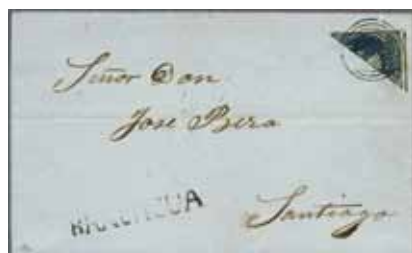 Señor Don
José Bera
Santiago